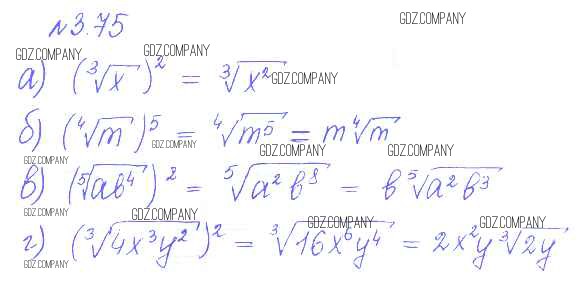 №3.75
GDZ.COMPANY
GDZ.COMPANY GDZ.COMPANY
а) (∛x)² = ∛x² GDZ.COMPANY
б) (⁴√m)⁵ = ⁴√m⁵ = m⁴√m
GDZ.COMPANY
GDZ.COMPANY GDZ.COMPANY GDZ.COMPANY
в) (⁵√ab⁴)² = ⁵√a²b⁸ = b⁵√a²b³
GDZ.COMPANY GDZ.COMPANY GDZ.COMPANY GDZ.COMPANY
г) (∛4x³y²)² = ∛16x⁶y⁴ = 2x²y∛2y
GDZ.COMPANY